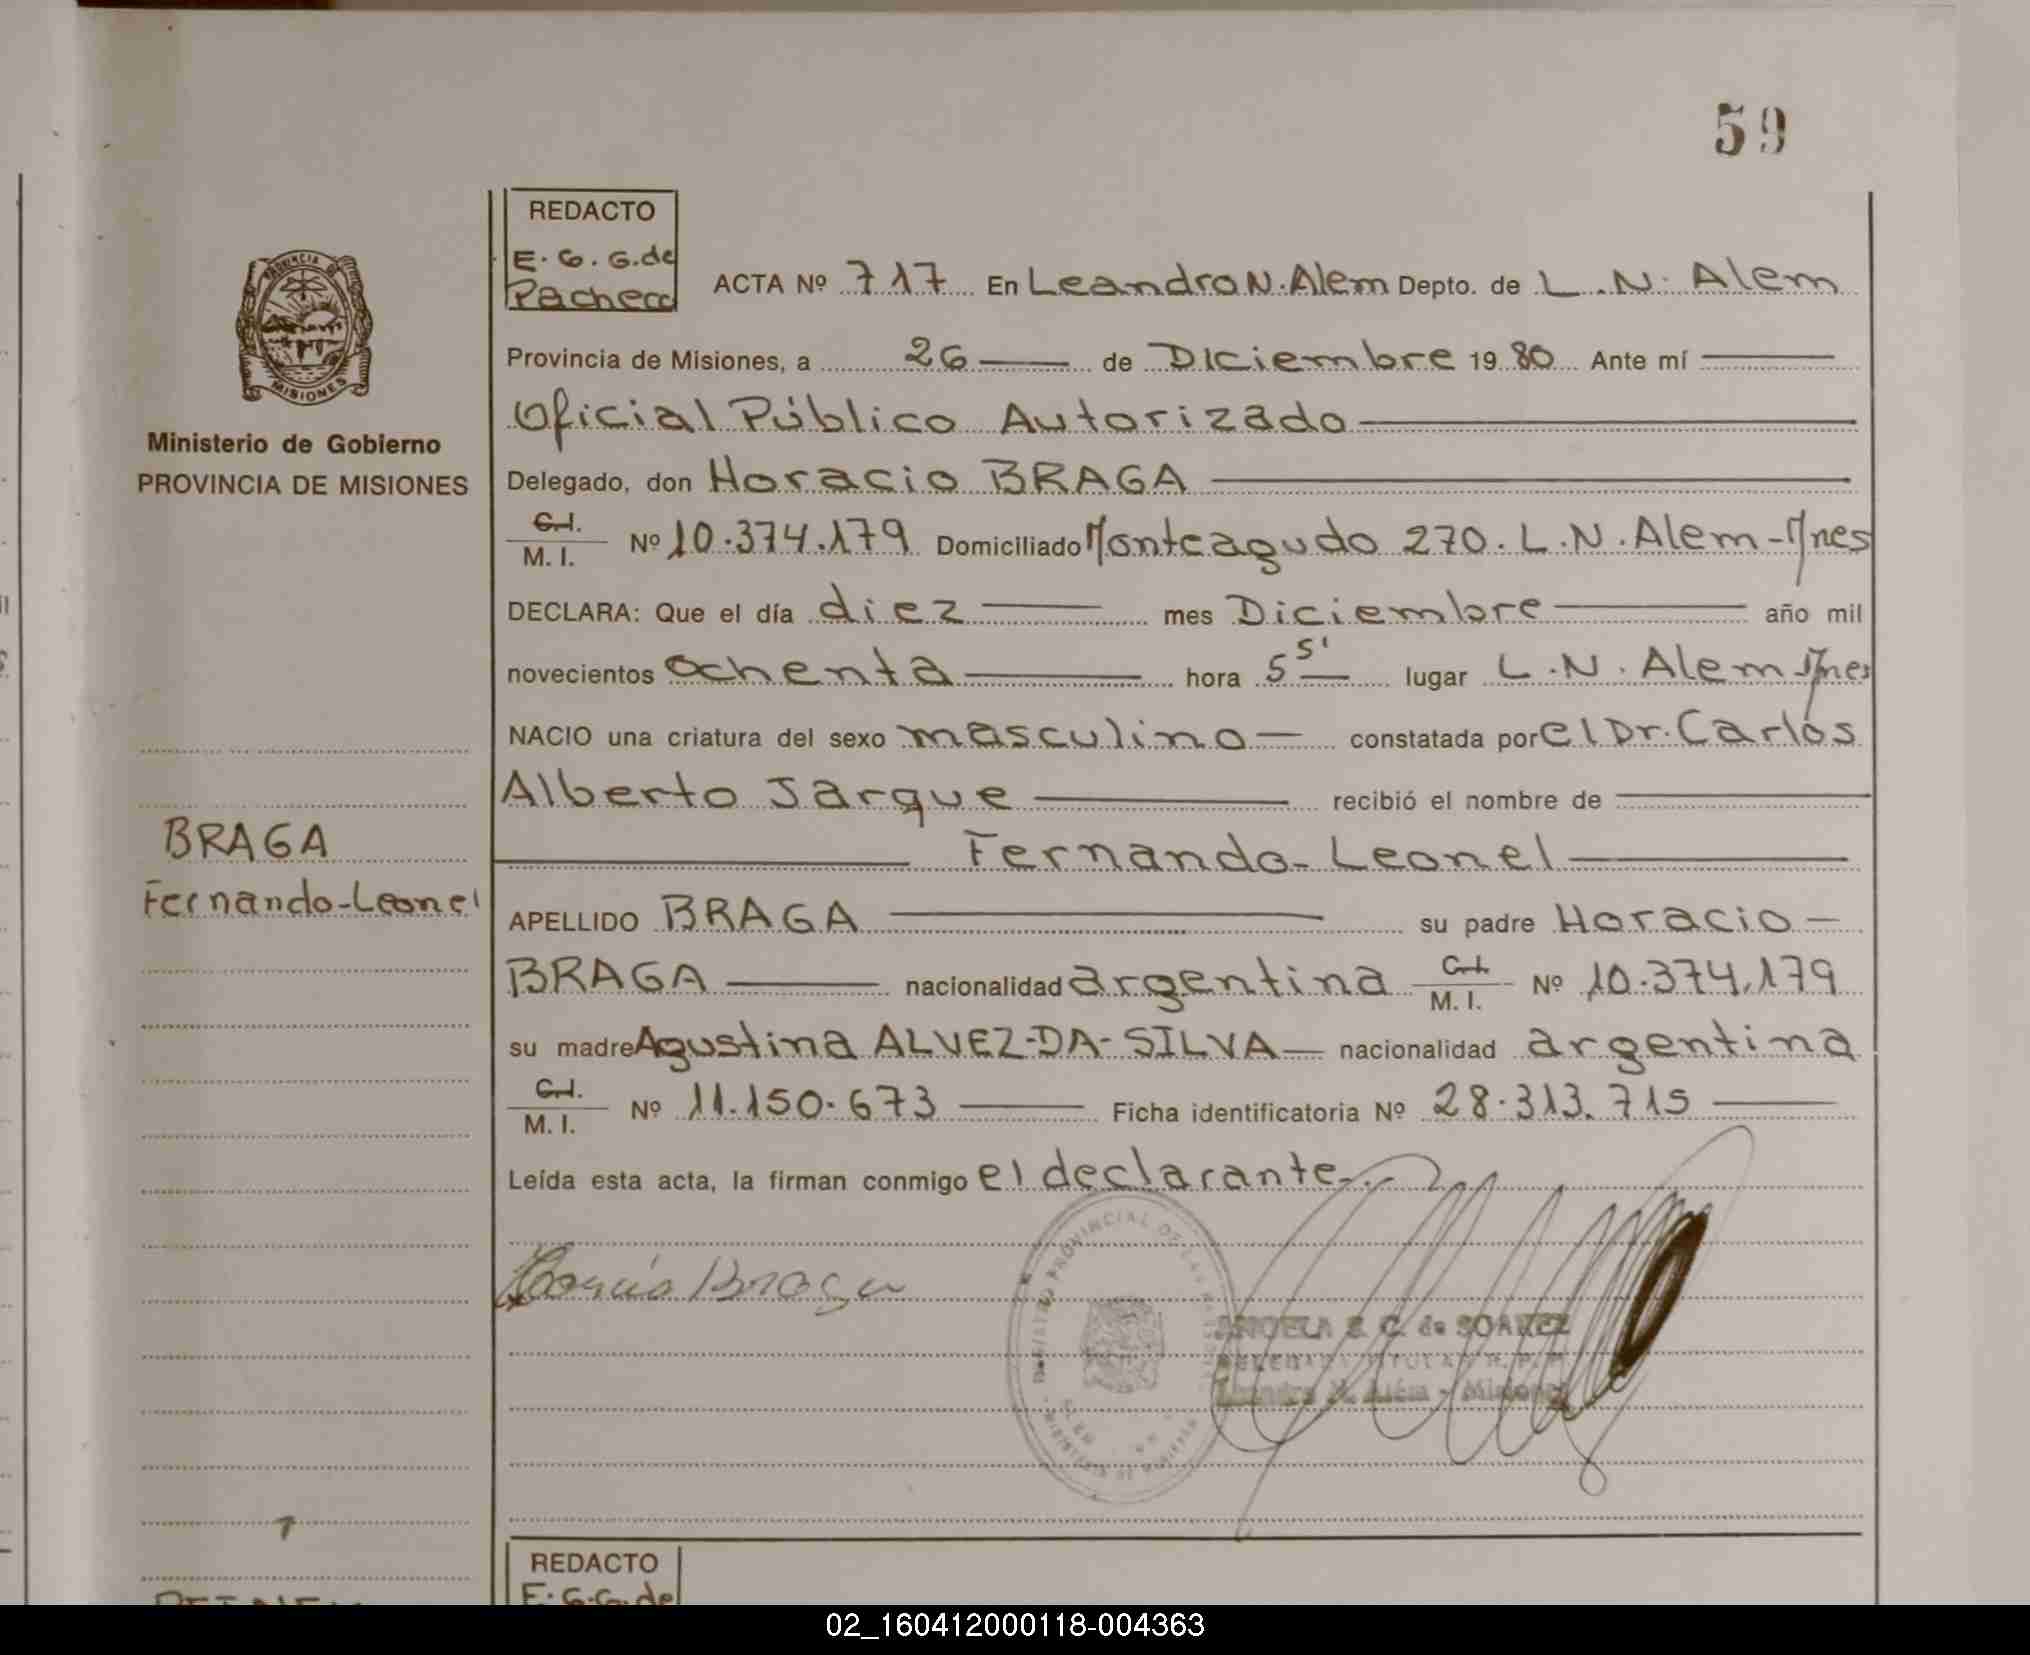 59
REDACTO
E. G. G. de
Pacheco
ACTA Nº 717 En Leandro N. Alem Depto. de L. N. Alem
Provincia de Misiones, a 26 de Diciembre 1980 Ante mí
Oficial Público Autorizado
Delegado, don Horacio BRAGA
C.I.
M. I. Nº 10.374.179 Domiciliado Monteagudo 270. L.N. Alem - Mnes
DECLARA: Que el día diez mes Diciembre año mil
novecientos ochenta hora 5 55' lugar L.N. Alem Mnes
NACIO una criatura del sexo masculino constatada por el Dr. Carlos
Alberto Jarque recibió el nombre de
Fernando-Leonel
APELLIDO BRAGA su padre Horacio
BRAGA nacionalidad argentina C.I. M. I. Nº 10.374.179
su madre Agustina ALVEZ-DA-SILVA nacionalidad argentina
C.I.
M. I. Nº 11.150.673 Ficha identificatoria Nº 28.313.715
Leída esta acta, la firman conmigo el declarante
Horacio Braga
PROVINCIAL DE LAS
ANGELA S. C. de SOAREZ
DELEGADA TITULAR R. P. P.
Leandro N. Além - Misiones
PROVINCIA DE
MISIONES
Ministerio de Gobierno
PROVINCIA DE MISIONES
BRAGA
Fernando-Leonel
REDACTO
E. G. G. de
02_160412000118-004363